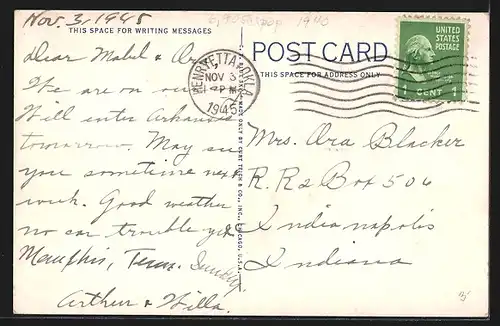 Nov. 3, 1945
1940
THIS SPACE FOR WRITING MESSAGES
POST CARD
THIS SPACE FOR ADDRESS ONLY
UNITED
STATES
POSTAGE
1 CENT 1
HENRYETTA, OKLA.
NOV 3
4 PM
1945
Dear Mabel &
We are on our
Will enter Arkansas
tomorrow. May see
you sometime next
week. Good weather
no car trouble yet
Memphis, Tenn. Sunday
Arthur & Willa.
Mrs. Ora Blacker
R. R 2 Box 506
Indianapolis
Indiana
MADE ONLY BY CURT TEICH & CO., INC., CHICAGO, U.S.A.